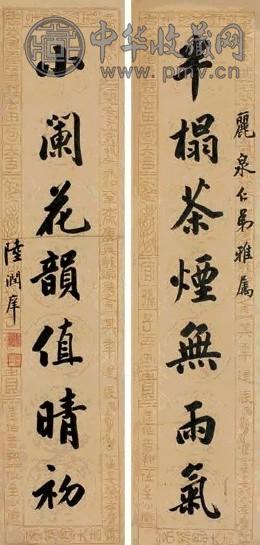 麗泉仁弟雅屬
半榻茶煙無雨氣
小闌花韻值晴初
陸潤庠
中华收藏网
www.pmv.cn